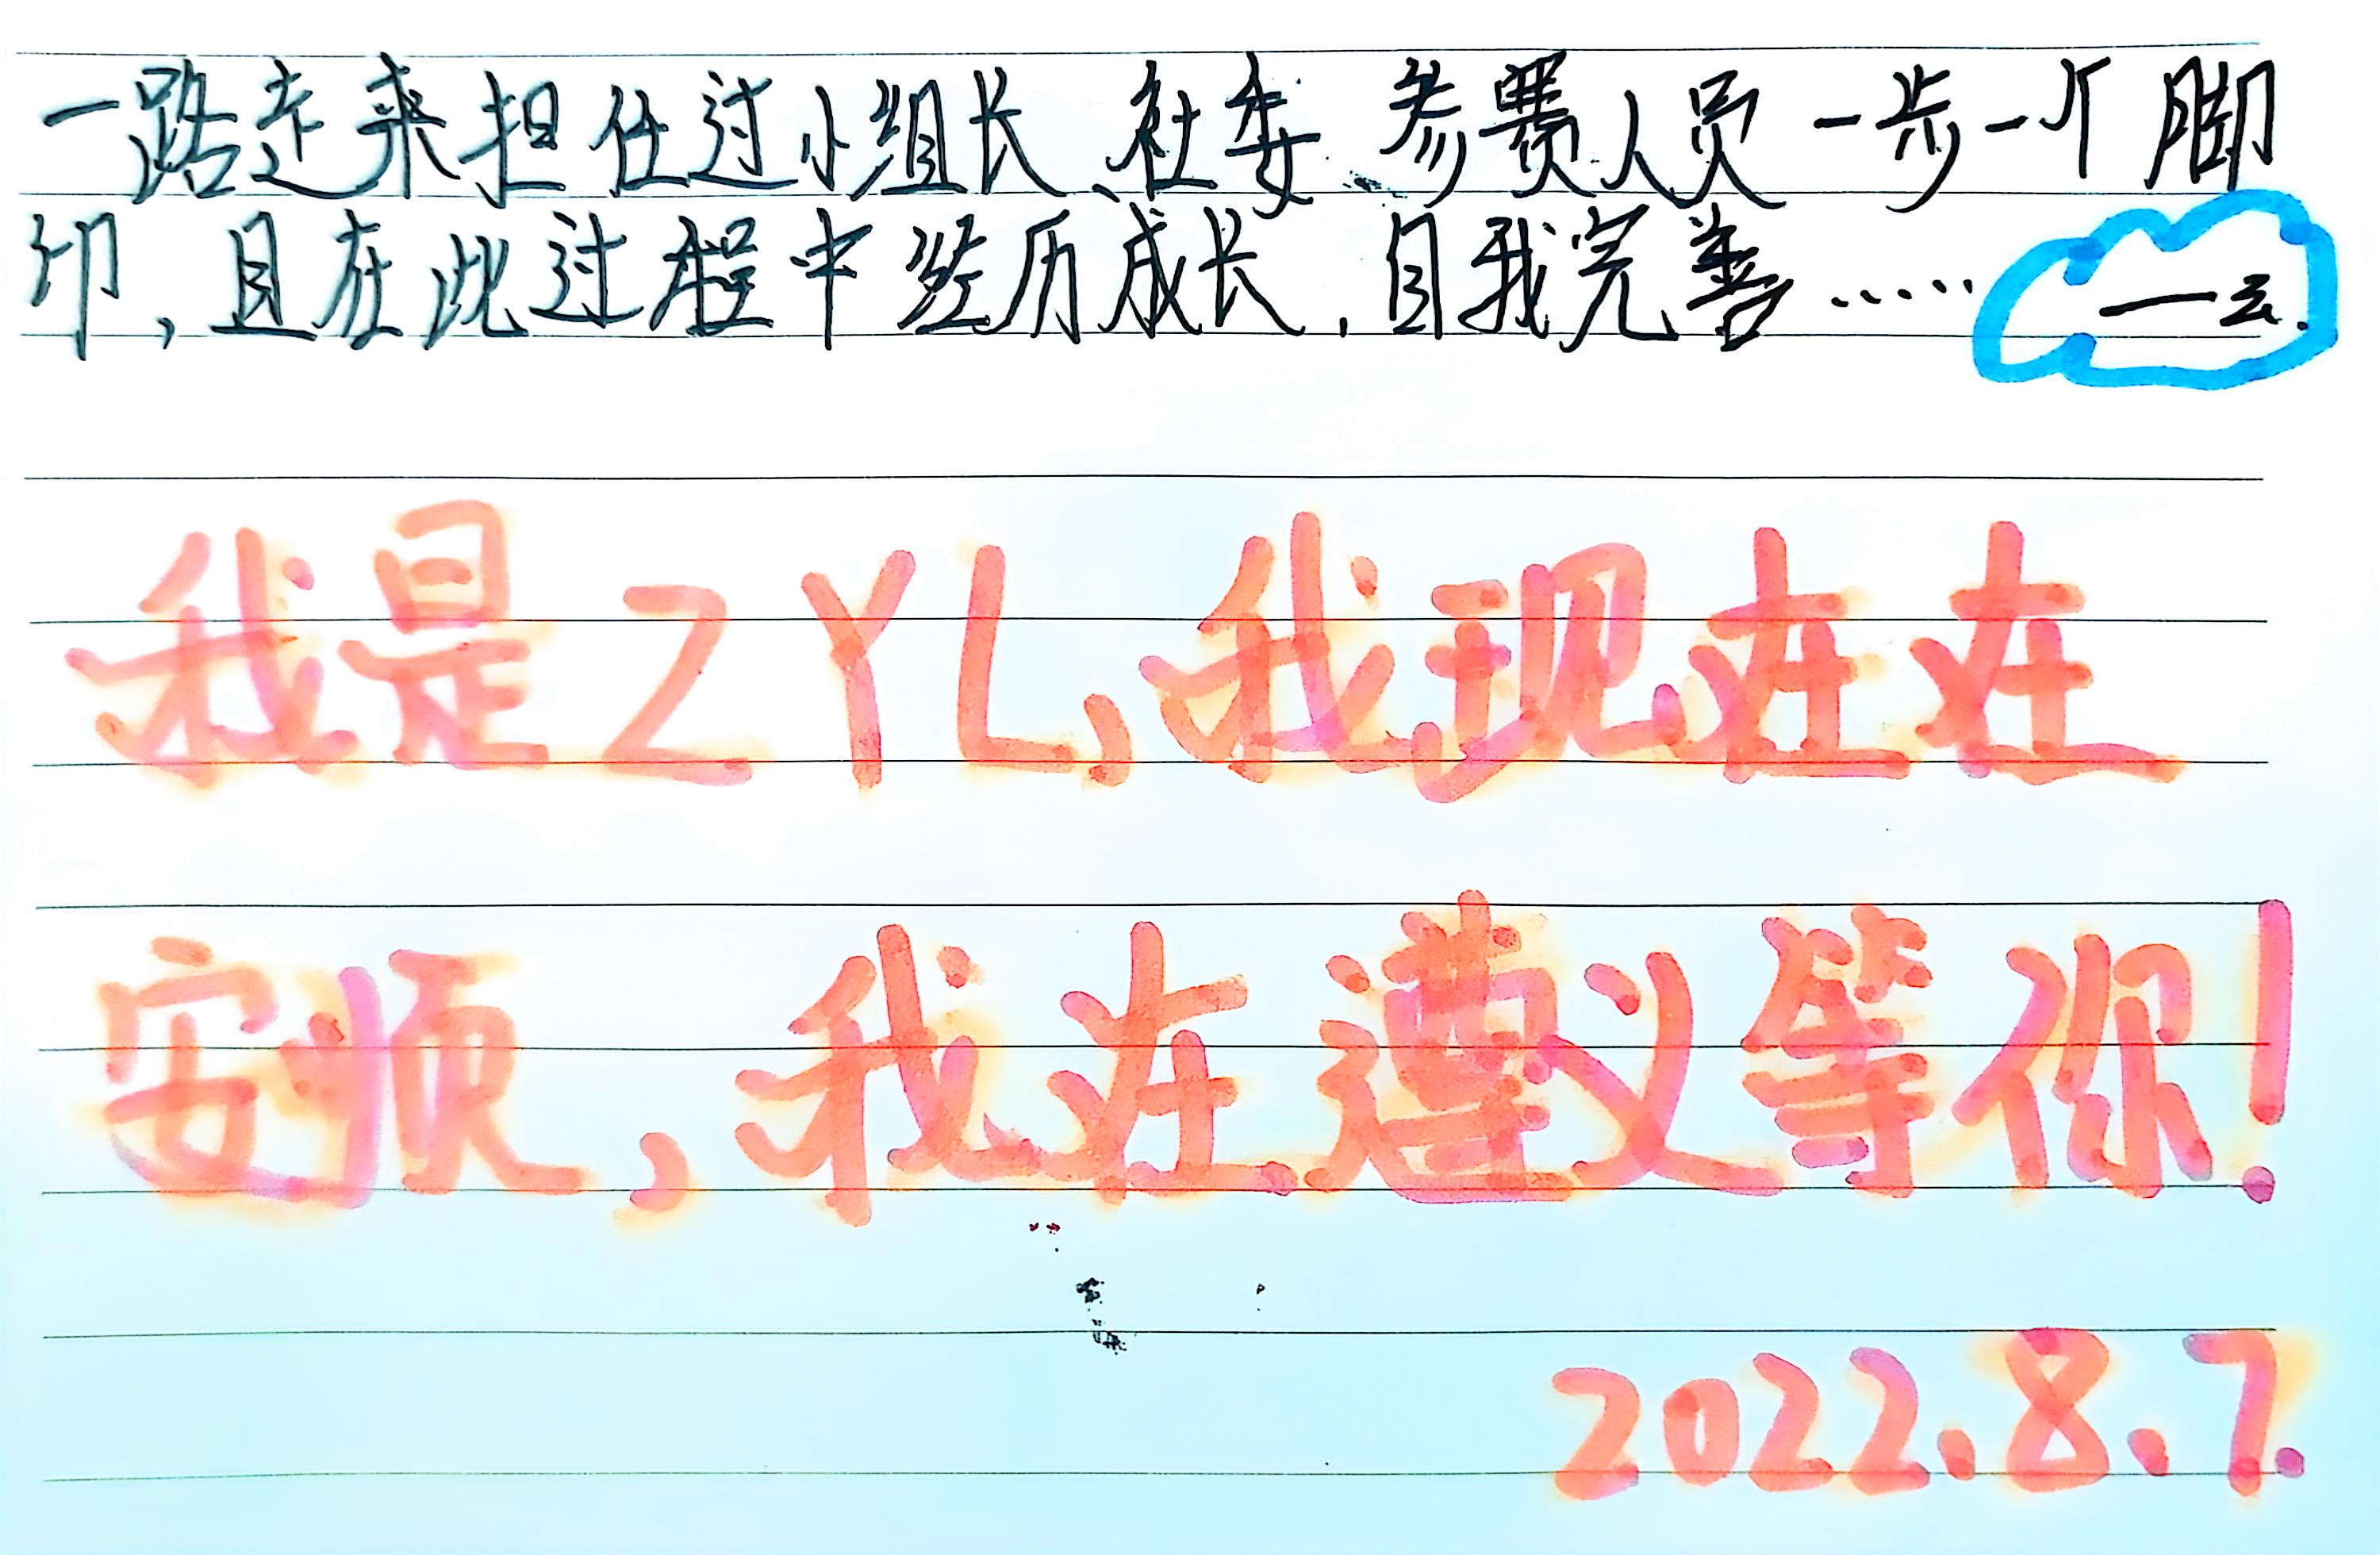 一路走来担任过小组长、社委、参赛人员一步一个脚
印,且在此过程中经历成长,自我完善…… 一云.
我是ZYL,我现在在
安顺,我在遵义等你!
2022.8.7.